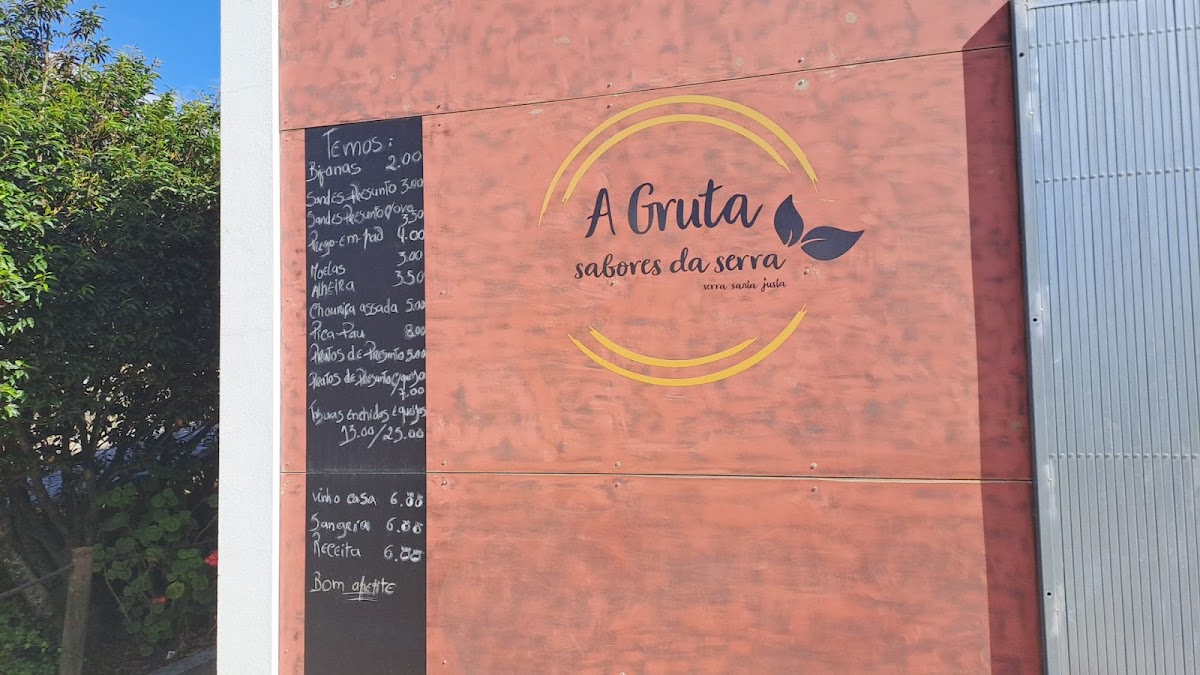 Temos:
Bifanas 2.00
Sandes Presunto 3.00
Sandes Presunto c/ovo 3.50
Prego-em-pão 4.00
Moelas 3.00
Alheira 3.50
Chouriça assada 5.00
Pica-Pau 8.00
Pratos de Presunto 5.00
Pratos de Presunto c/queijo
7.00
Tabuas Enchidos e queijos
13.00/25.00
Vinho casa 6.00
Sangria 6.00
Receita 6.00
Bom apetite
A Gruta
sabores da serra
serra santa justa